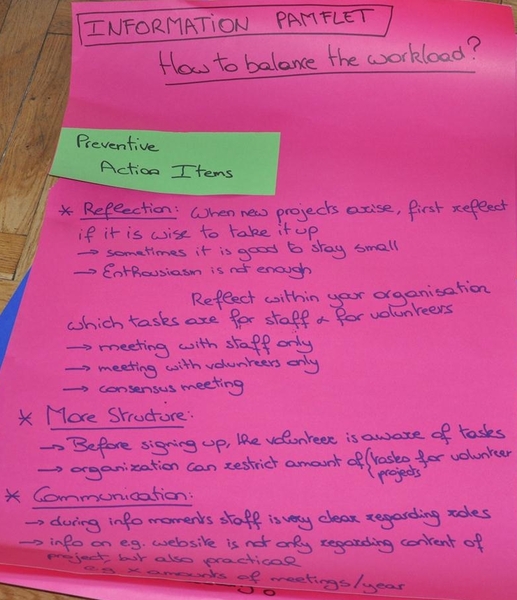 INFORMATION PAMFLET
How to balance the workload?
Preventive
Action Items
* Reflection: When new projects arise, first reflect
if it is wise to take it up
→ sometimes it is good to stay small
→ Enthousiasm is not enough
Reflect within your organisation
which tasks are for staff & for volunteers
→ meeting with staff only
→ meeting with volunteers only
→ consensus meeting
* More Structure:
→ Before signing up, the volunteer is aware of tasks
→ organization can restrict amount of (tasks for volunteer
(projects
* Communication:
→ during info moments staff is very clear regarding roles
→ info on eg. website is not only regarding content of
project, but also practical
e.g. x amounts of meetings/year